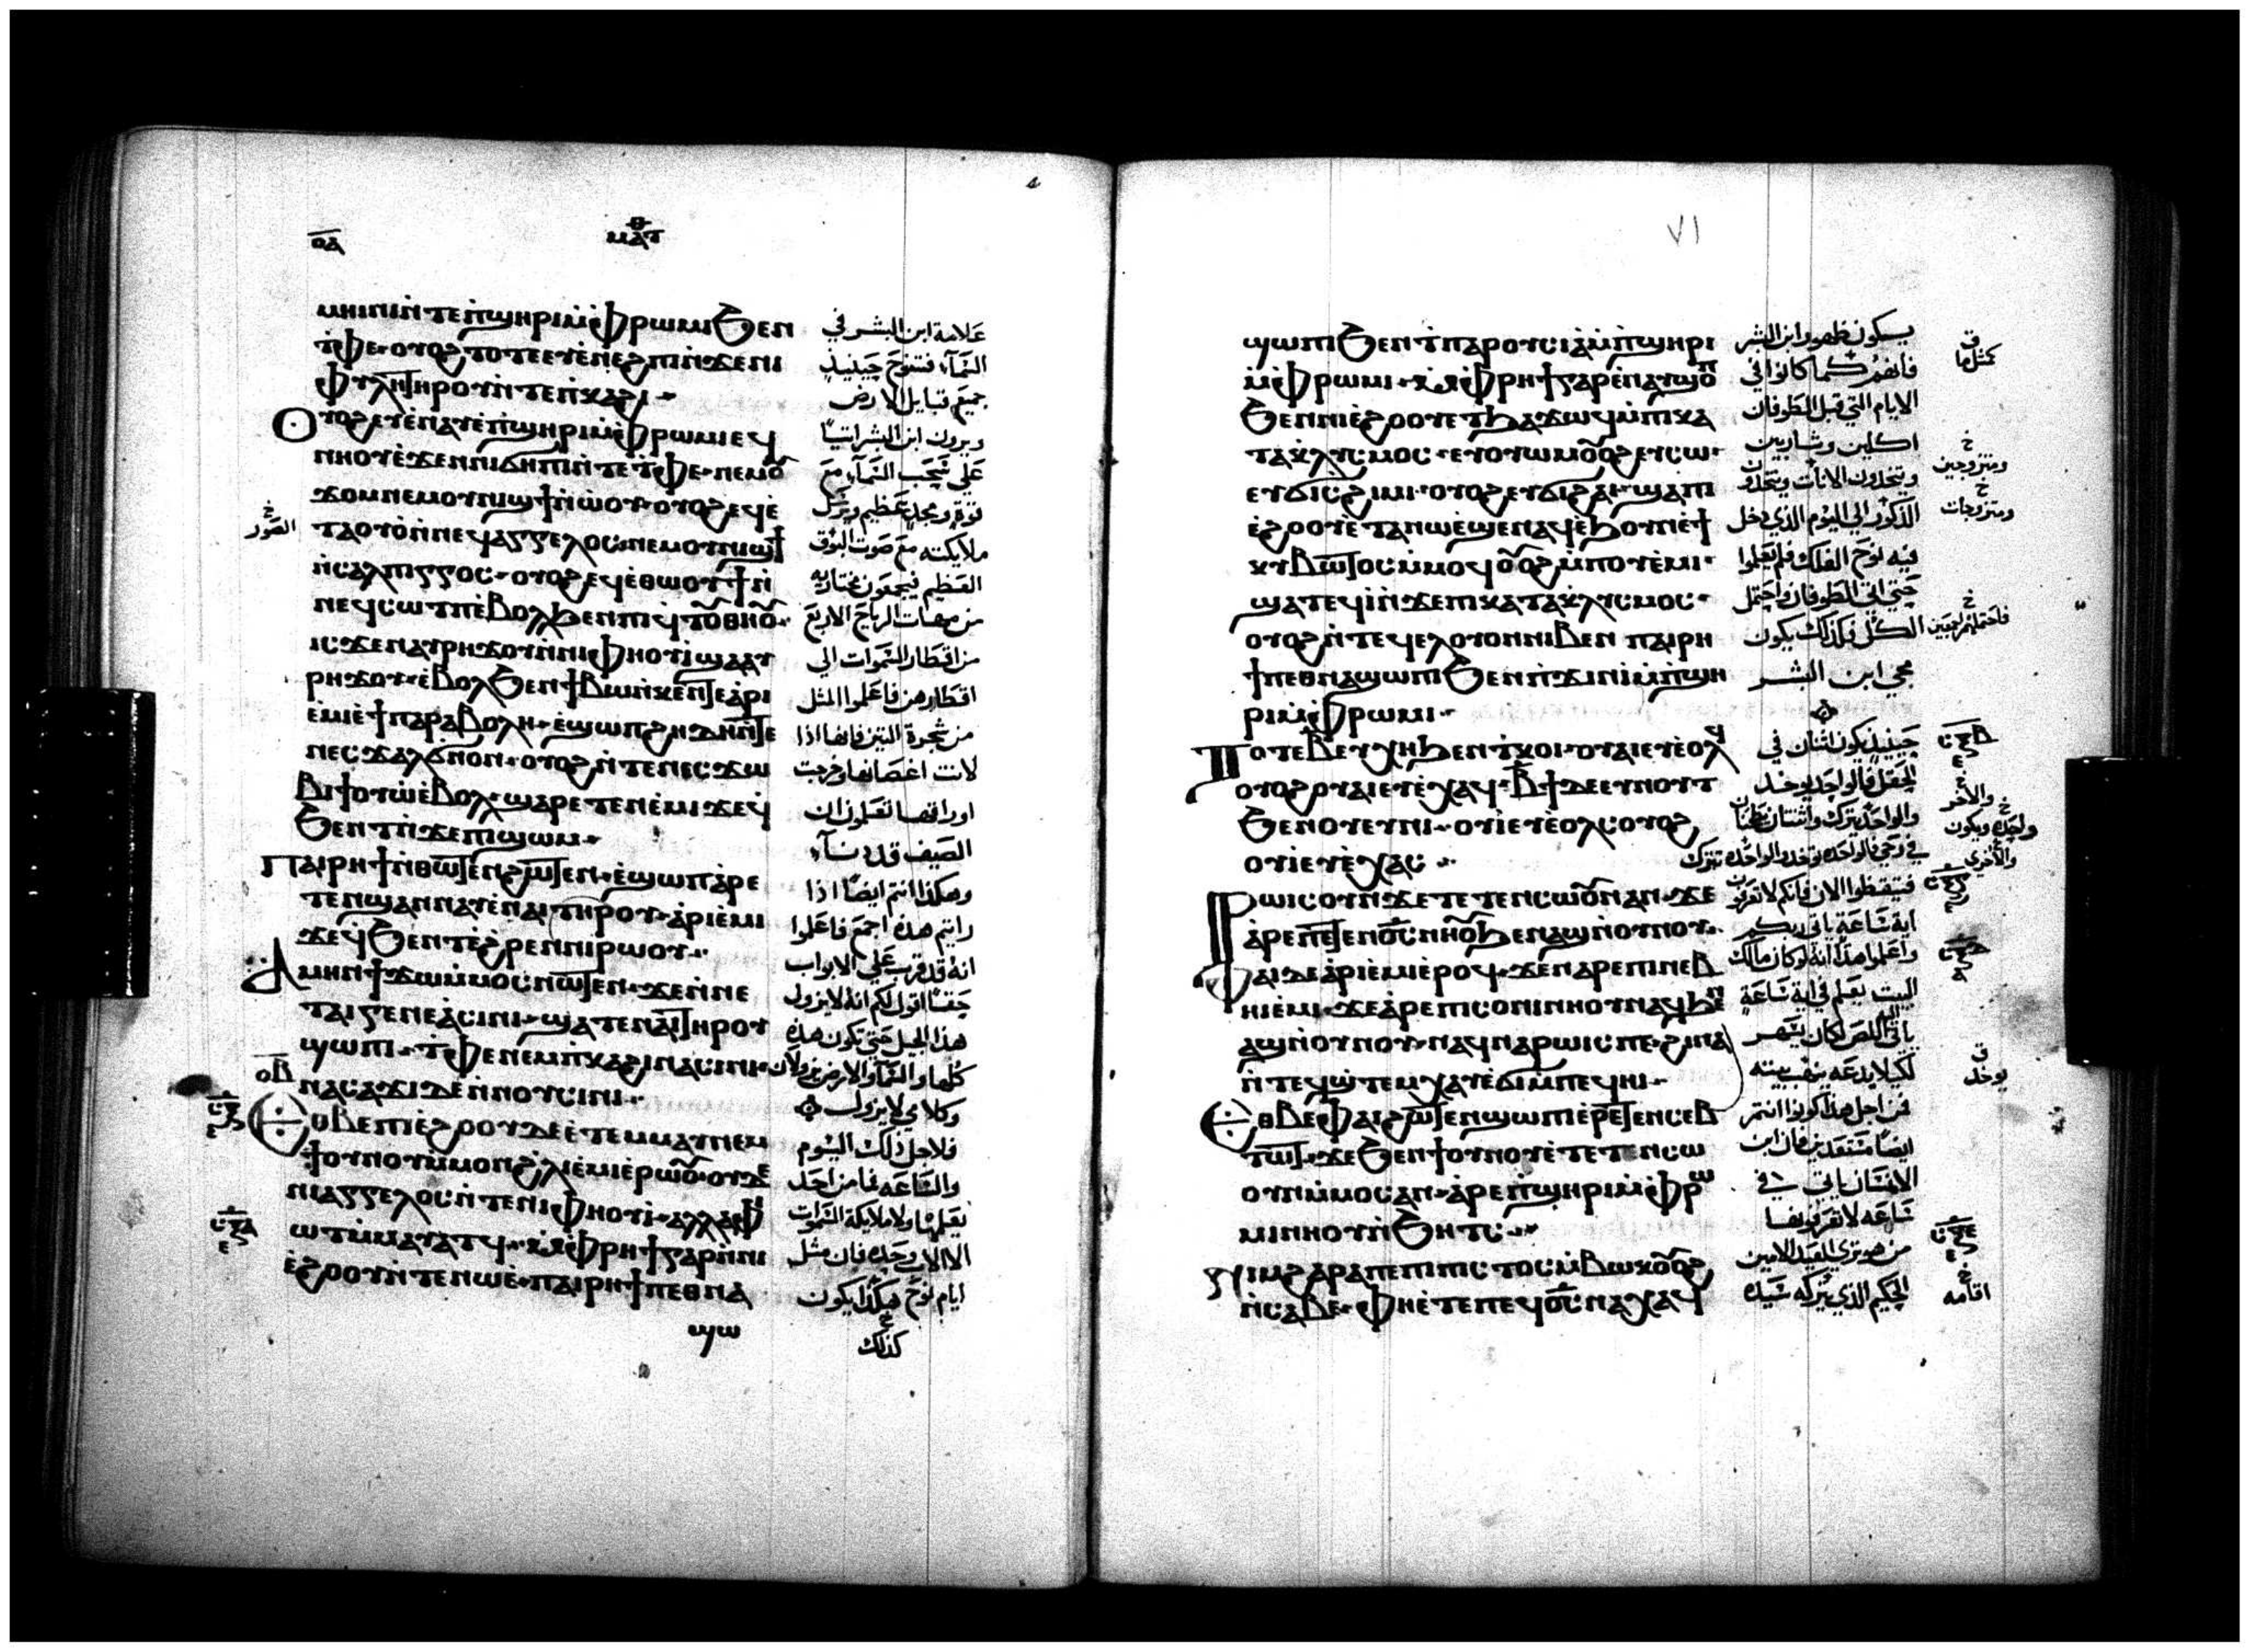 ⲟⲁ
ⲙⲁⲧ
ⲙⲏⲓⲛⲓ ⲛ̀ⲧⲉ ⲡ̀ϣⲏⲣⲓ ⲙ̀ⲫⲣⲱⲙⲓ ϧⲉⲛ
ⲧ̀ⲫⲉ · ⲟⲩⲟϩ ⲧⲟⲧⲉ ⲉⲩⲉ̀ⲛⲉϩⲡⲓ ⲛ̀ϫⲉ ⲛⲓ
ⲫⲩⲗⲏ ⲧⲏⲣⲟⲩ ⲛ̀ⲧⲉ ⲡ̀ⲕⲁϩⲓ ·
Ⲟⲩⲟϩ ⲉⲩⲉ̀ⲛⲁⲩ ⲉ̀ⲡ̀ϣⲏⲣⲓ ⲙ̀ⲫⲣⲱⲙⲓ ⲉϥ
ⲛⲏⲟⲩ ⲉ̀ϫⲉⲛ ⲛⲓϭⲏⲡⲓ ⲛ̀ⲧⲉ ⲧ̀ⲫⲉ · ⲛⲉⲙ ⲟⲩ
ϫⲟⲙ ⲛⲉⲙ ⲟⲩⲛⲓϣϯ ⲛ̀ⲱ̀ⲟⲩ · ⲟⲩⲟϩ ⲉϥⲉ̀
ⲧⲁⲟⲩⲟ̀ ⲛ̀ⲛⲉϥⲁⲅⲅⲉⲗⲟⲥ ⲛⲉⲙ ⲟⲩⲛⲓϣϯ
ⲛ̀ⲥⲁⲗⲡⲓⲅⲅⲟⲥ · ⲟⲩⲟϩ ⲉϥⲉ̀ⲑⲱⲟⲩϯ ⲛ̀
ⲛⲉϥⲥⲱⲧⲡ ⲉ̀ⲃⲟⲗ ϧⲉⲛ ⲡⲓϥⲧⲟⲩ ⲑⲏⲟⲩ ·
ⲓⲥϫⲉⲛ ⲁⲩⲣⲏϫⲟⲩ ⲛ̀ⲛⲓⲫⲏⲟⲩⲓ̀ ϣⲁ ⲁⲩ
ⲣⲏϫⲟⲩ · ⲉ̀ⲃⲟⲗ ϧⲉⲛ ϯⲃⲱ ⲛ̀ⲕⲉⲛⲧⲉ ⲁ̀ⲣⲓ
ⲉ̀ⲙⲓ ⲉ̀ϯⲡⲁⲣⲁⲃⲟⲗⲏ · ⲉ̀ϣⲱⲡ ϩⲏⲇⲏ ⲛ̀ⲧⲉ
ⲛⲉⲥϫⲁⲗ ϭⲛⲟⲛ · ⲟⲩⲟϩ ⲛ̀ⲧⲉ ⲛⲉⲥϫⲱ
ⲃⲓ ϯⲟⲩⲱ̀ ⲉ̀ⲃⲟⲗ · ϣⲁⲣⲉⲧⲉⲛⲉ̀ⲙⲓ ϫⲉ ϥ̀
ϧⲉⲛⲧ ⲛ̀ϫⲉ ⲡⲓϣⲱⲙ ·
Ⲡⲁⲓⲣⲏϯ ⲛ̀ⲑⲱⲧⲉⲛ ϩⲱⲧⲉⲛ · ⲉ̀ϣⲱⲡ ⲁ̀ⲣⲉ
ⲧⲉⲛϣⲁⲛⲛⲁⲩ ⲉ̀ⲛⲁⲓ ⲧⲏⲣⲟⲩ · ⲁ̀ⲣⲓⲉ̀ⲙⲓ
ϫⲉ ϥ̀ϧⲉⲛⲧ ⲉ̀ϩⲣⲉⲛ ⲛⲓⲣⲱⲟⲩ ·
Ⲁⲙⲏⲛ ϯϫⲱ ⲙ̀ⲙⲟⲥ ⲛⲱⲧⲉⲛ · ϫⲉ ⲛ̀ⲛⲉ
ⲧⲁⲓⲅⲉⲛⲉⲁ̀ ⲥⲓⲛⲓ · ϣⲁⲧⲉ ⲛⲁⲓ ⲧⲏⲣⲟⲩ
ϣⲱⲡⲓ · ⲧ̀ⲫⲉ ⲛⲉⲙ ⲡ̀ⲕⲁϩⲓ ⲛⲁⲥⲓⲛⲓ ·
ⲛⲁⲥⲁϫⲓ ⲇⲉ ⲛ̀ⲛⲟⲩⲥⲓⲛⲓ ·
ⲟⲃ
Ⲉⲑⲃⲉ ⲡⲓⲉ̀ϩⲟⲟⲩ ⲇⲉ ⲉ̀ⲧⲉⲙⲙⲁⲩ ⲛⲉⲙ
ϯⲟⲩⲛⲟⲩ ⲙ̀ⲙⲟⲛ ϩ̀ⲗⲓ ⲉ̀ⲙⲓ ⲉ̀ⲣⲱⲟⲩ · ⲟⲩⲇⲉ
ⲛⲓⲁⲅⲅⲉⲗⲟⲥ ⲛ̀ⲧⲉ ⲛⲓⲫⲏⲟⲩⲓ̀ · ⲁⲗⲗⲁ ⲫⲓ
ⲱⲧ ⲙ̀ⲙⲁⲩⲁⲧϥ · ⲙ̀ⲫⲣⲏϯ ⲅⲁⲣ ⲛ̀ⲛⲓ
ⲉ̀ϩⲟⲟⲩ ⲛ̀ⲧⲉ ⲛⲱⲉ̀ · ⲡⲁⲓⲣⲏϯ ⲡⲉⲑⲛⲁ
ϣⲱ
علامة ابن البشر في
السماء فتنوح حينيذ
جميع قبايل الارض
ويرون ابن البشر اتيًا
علي سحب السماء مع
قوة ومجد عظيم ويرسل
ملايكته مع صوت البوق
خ الصور
العظيم فيجمعون مختاريه
من مهبات الرياح الاربع
من اقطار السموات الي
اقطارهن فاعلموا المثل
من شجرة التين فانها اذا
لانت اغصانها وخرجت
اوراقها تعلمون ان
الصيف قد دنا
وهكذا انتم ايضًا اذا
رايتم هذه اجمع فاعلموا
انه قد قرب علي الابواب
حقًا اقول لكم انه لا يزول
هذا الجيل حتي تكون هذه
كلها والسماء والارض يزولان
وكلامي لا يزول
فلاجل ذلك اليوم
والساعه فما من احد
يعلمها ولا ملايكة السموات
الا الاب وحده فان مثل
ايام نوح هكذا يكون
خ كذلك
٧١
ϣⲱⲡⲓ ϧⲉⲛ ⲧ̀ⲡⲁⲣⲟⲩⲥⲓⲁ̀ ⲙ̀ⲡ̀ϣⲏⲣⲓ
ⲙ̀ⲫⲣⲱⲙⲓ · ⲙ̀ⲫⲣⲏϯ ⲅⲁⲣ ⲉ̀ⲛⲁⲩϣⲟⲡ
ϧⲉⲛ ⲛⲓⲉ̀ϩⲟⲟⲩ ⲉⲧϧⲁϫⲱϥ ⲙ̀ⲡⲓⲕⲁ
ⲧⲁⲕⲗⲩⲥⲙⲟⲥ · ⲉⲩⲟⲩⲱⲙ ⲟⲩⲟϩ ⲉⲩⲥⲱ ·
ⲉⲩϭⲓⲥϩⲓⲙⲓ · ⲟⲩⲟϩ ⲉⲩϭⲓϩⲁⲓ · ϣⲁ ⲡⲓ
ⲉ̀ϩⲟⲟⲩ ⲉ̀ⲧⲁ ⲛⲱⲉ̀ ϣⲉⲛⲁϥ ⲉ̀ϧⲟⲩⲛ ⲉ̀ϯ
ⲕⲩⲃⲱⲧⲟⲥ ⲙ̀ⲙⲟϥ ⲟⲩⲟϩ ⲙ̀ⲡⲟⲩⲉ̀ⲙⲓ ·
ϣⲁⲧⲉϥⲓ̀ ⲛ̀ϫⲉ ⲡⲓⲕⲁⲧⲁⲕⲗⲩⲥⲙⲟⲥ ·
ⲟⲩⲟϩ ⲛ̀ⲧⲉϥⲉⲗ ⲟⲩⲟⲛ ⲛⲓⲃⲉⲛ ⲡⲁⲓⲣⲏ
ϯ ⲡⲉⲑⲛⲁϣⲱⲡⲓ ϧⲉⲛ ⲡ̀ϫⲓⲛⲓ̀ ⲙ̀ⲡ̀ϣⲏ
ⲣⲓ ⲙ̀ⲫⲣⲱⲙⲓ ·
Ⲧⲟⲧⲉ ⲃ ⲉⲩⲭⲏ ϧⲉⲛ ⲧ̀ⲕⲟⲓ · ⲟⲩⲁⲓ ⲉⲩⲉ̀ⲟⲗϥ
ⲟⲩⲟϩ ⲟⲩⲁⲓ ⲉⲩⲉ̀ⲭⲁϥ · ⲃ̄ϯ ⲇⲉ ⲉⲩⲛⲟⲩⲧ
ϧⲉⲛ ⲟⲩⲉⲩⲛⲓ · ⲟⲩⲓ̀ ⲉⲩⲉ̀ⲟⲗⲥ ⲟⲩⲟϩ
ⲟⲩⲓ̀ ⲉⲩⲉ̀ⲭⲁⲥ ·
Ⲣⲱⲓⲥ ⲟⲩⲛ ϫⲉ ⲧⲉⲧⲉⲛⲥⲱⲟⲩⲛ ⲁⲛ · ϫⲉ
ⲁ̀ⲣⲉ ⲡⲉⲧⲉⲛⲟ̄ⲥ̄ ⲛⲏⲟⲩ ϧⲉⲛ ⲁϣ ⲛ̀ⲟⲩⲛⲟⲩ ·
Ⲫⲁⲓ ⲇⲉ ⲁ̀ⲣⲓⲉ̀ⲙⲓ ⲉ̀ⲣⲟϥ · ϫⲉ ⲛⲁⲣⲉ ⲡⲓⲛⲉⲃ
ⲏⲓ ⲉ̀ⲙⲓ · ϫⲉ ⲁ̀ⲣⲉ ⲡⲓⲥⲟⲛⲓ ⲛⲏⲟⲩ ⲛⲁϥ ϧⲉⲛ
ⲁϣ ⲛ̀ⲟⲩⲛⲟⲩ · ⲛⲁϥⲛⲁⲣⲱⲓⲥ ⲡⲉ · ϩⲓⲛⲁ
ⲛ̀ⲧⲉϥϣ̀ⲧⲉⲙⲭⲁⲩ ⲉ̀ϭⲓ ⲙ̀ⲡⲉϥⲏⲓ ·
Ⲉⲑⲃⲉ ⲫⲁⲓ ϩⲱⲧⲉⲛ ϣⲱⲡⲓ ⲉ̀ⲣⲉⲧⲉⲛⲥⲉⲃ
ⲧⲱⲧ · ϫⲉ ϧⲉⲛ ϯⲟⲩⲛⲟⲩ ⲉ̀ⲧⲉⲧⲉⲛⲥⲱ
ⲟⲩⲛ ⲙ̀ⲙⲟⲥ ⲁⲛ · ⲁ̀ⲣⲉ ⲡ̀ϣⲏⲣⲓ ⲙ̀ⲫⲣⲱ
ⲙⲓ ⲛⲏⲟⲩ ⲛ̀ϧⲏⲧⲥ ·
Ⲛⲓⲙ ϩⲁⲣⲁ ⲡⲉ ⲡⲓⲡⲓⲥⲧⲟⲥ ⲙ̀ⲃⲱⲕ ⲟⲩⲟϩ
ⲛ̀ⲥⲁⲃⲉ · ⲫⲏ ⲉ̀ⲧⲉ ⲡⲉϥⲟ̄ⲥ̄ ⲛⲁⲭⲁϥ
سيكون ظهور ابن البشر
فانهم كما كانوا في
ق كمثلما
الايام التي قبل الطوفان
اكلين وشاربين
ويتخذون الاناث ويتخذون
خ ومتزوجين
الذكور الي اليوم الذي دخل
خ ومتزوجات
فيه نوح الفلك فلم يعلموا
حتي اتي الطوفان واحتمل
الكل فكذلك يكون
خ فاحتملهم اجمعين
مجي ابن البشر
حينيذ يكون اثنان في
الحقل فالواحد يوخذ
خ والاخر
والواحد يترك واثنتان تطحنان
خ واحده ويكون
في رحي فالواحده توخذ والواحده تترك
خ والاخري
فتيقظوا الان فانكم لا تعرفون
اية ساعة ياتي ربكم
واعلموا هذا انه لو كان مالك
البيت يعلم في اية ساعة
ياتي اللص لكان يسهر
لكيلا يدعه ينهب بيته
ق يوخذ
فمن اجل هذا كونوا انتم
ايضًا مستعدين فان ابن
الانسان ياتي في
ساعه لا تعرفونها
من هو تري العبد الامين
الحكيم الذي يتركه سيده
خ اقامه